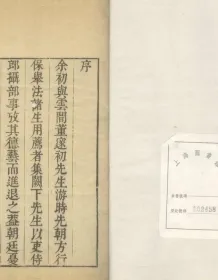 序
余初與雲間董遠初先生游時先朝方行
保舉法常生用薦者集闕下先生以吏侍
郎攝部事攷其德藝而進退之蓋朝廷憂